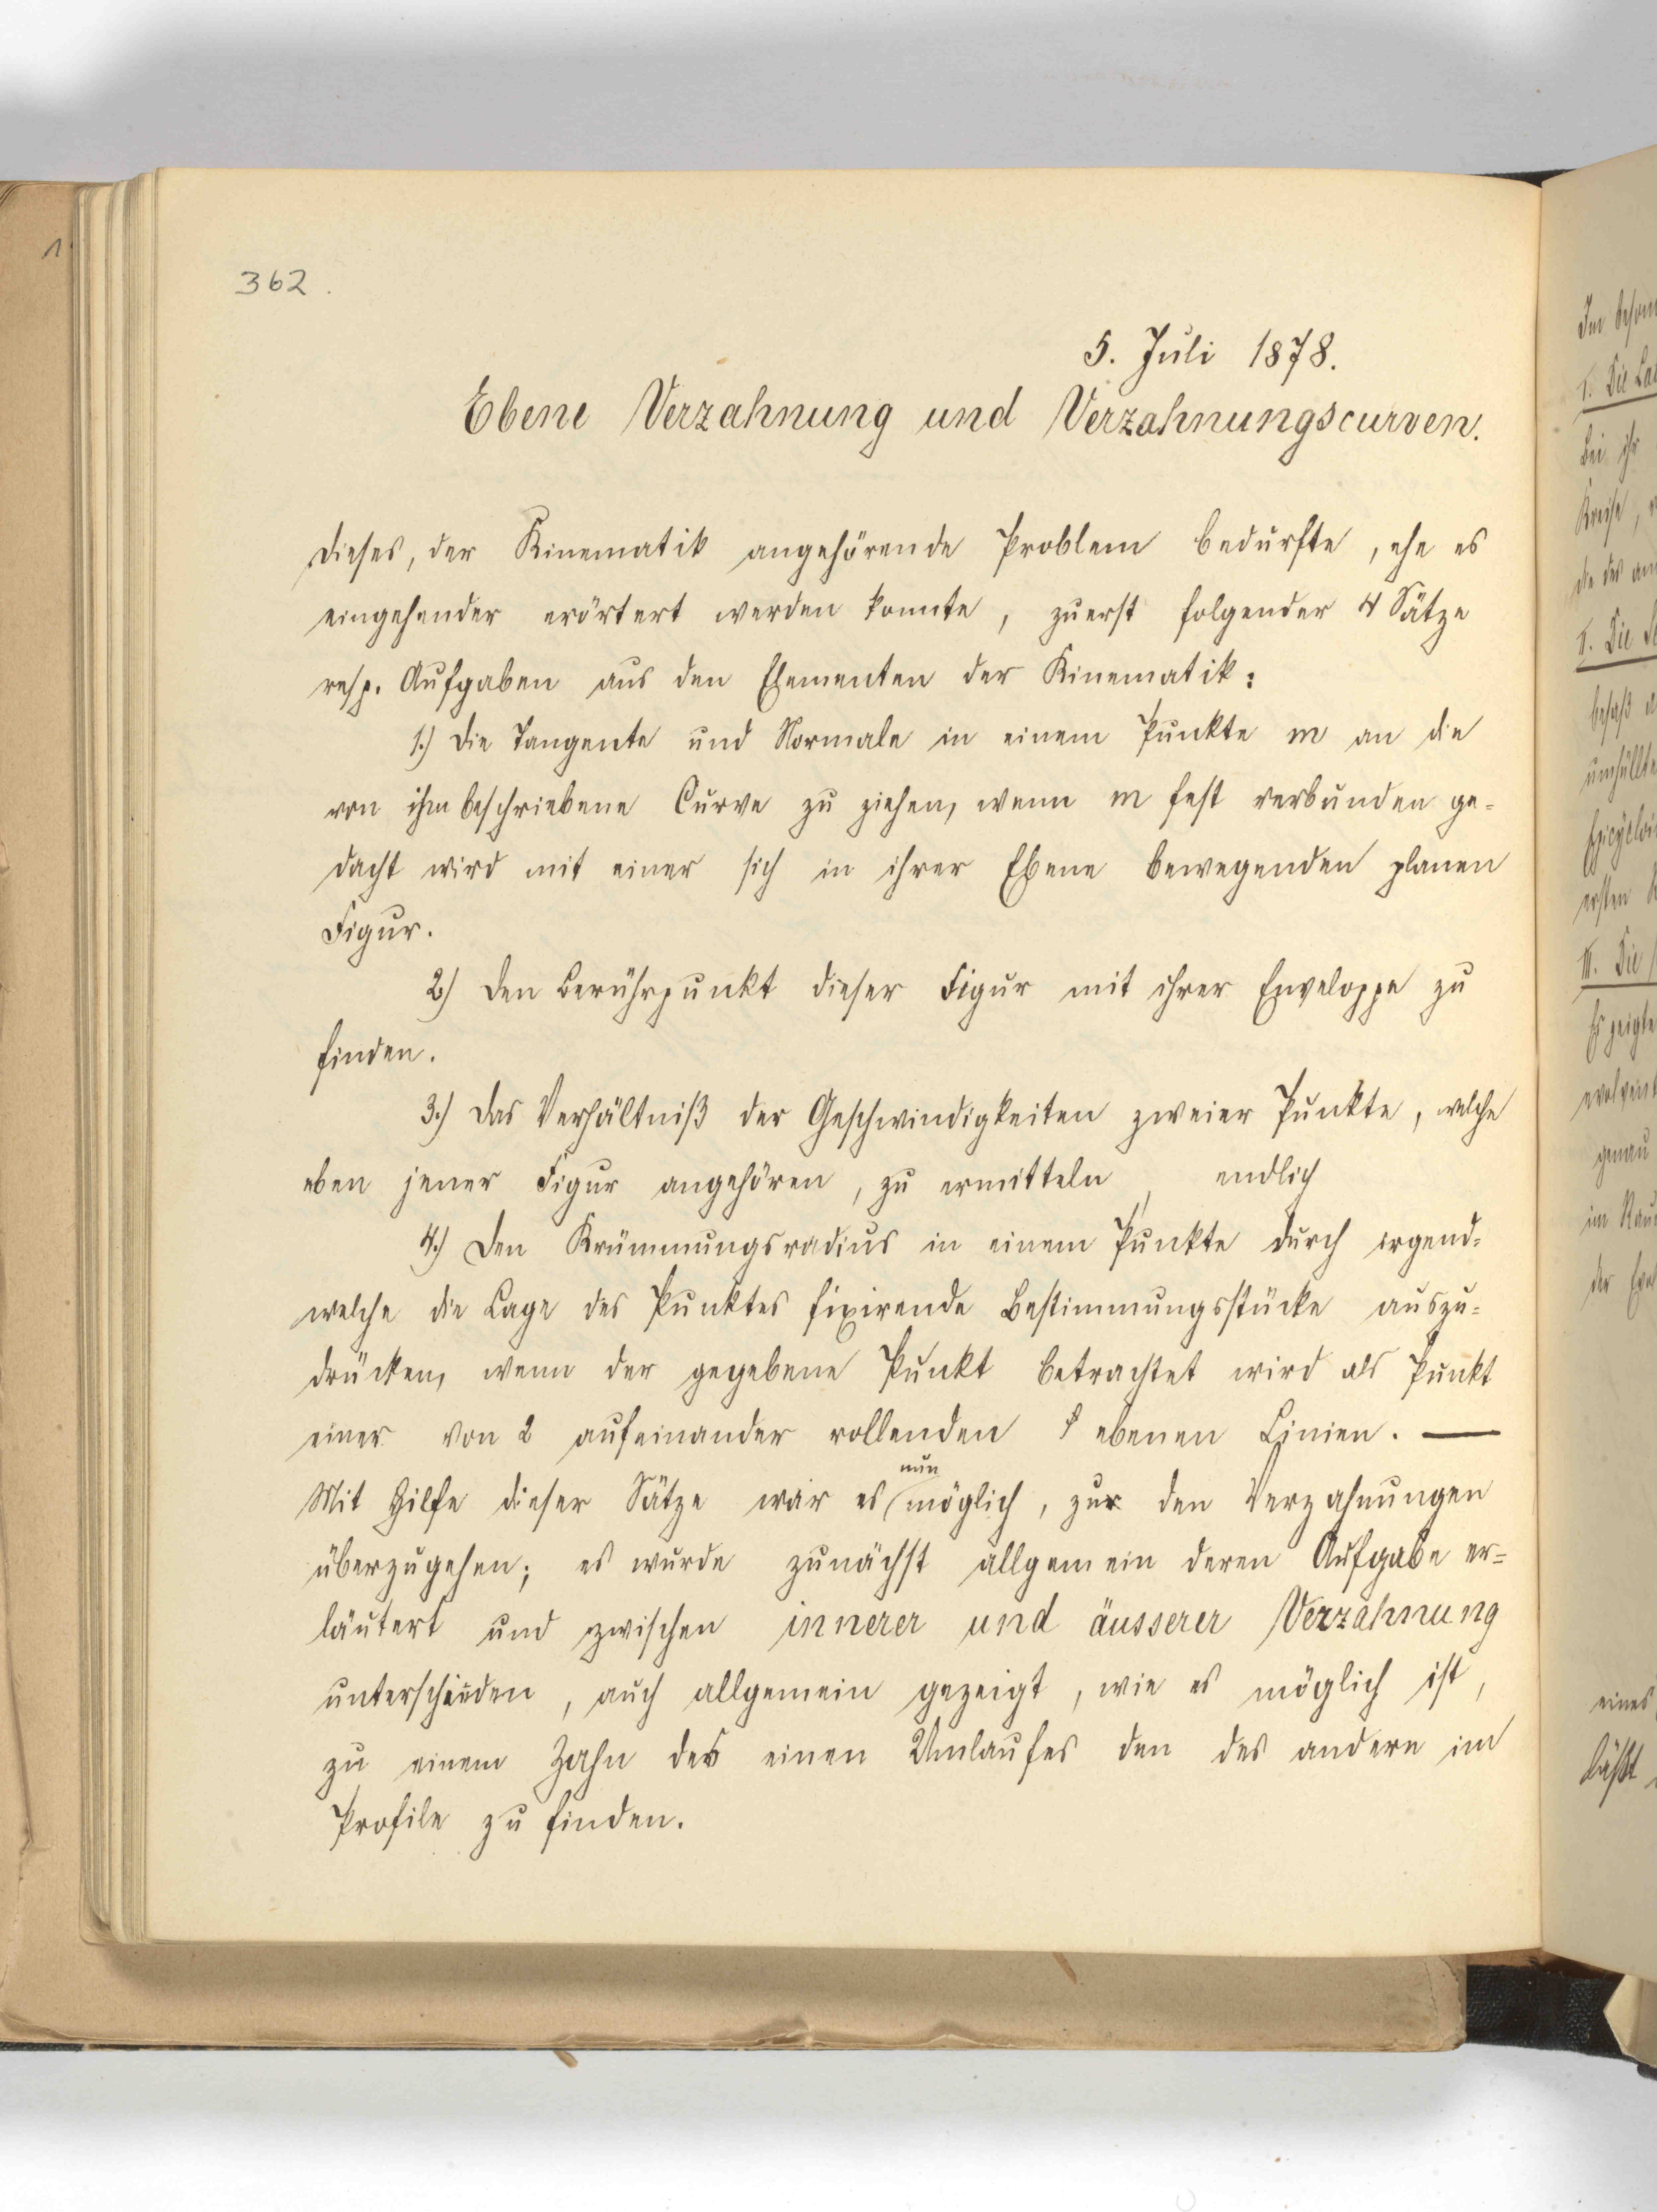 362.
5. Juli 1878.
Ebene Verzahnung und Verzahnungscurven.
Dieses, der Kinematik angehörende Problem bedurfte, ehe es
eingehender erörtert werden konnte, zuerst folgender 4 Sätze
resp. Aufgaben aus den Elementen der Kinematik:
1.) Die Tangente und Normale in einem Punkte m an die
von ihm beschriebene Curve zu ziehen, wenn m fest verbunden ge=
dacht wird mit einer sich in ihrer Ebene bewegenden planen
Figur.
2.) Den Berührpunkt dieser Figur mit ihrer Enveloppe zu
finden.
3.) Das Verhältniß der Geschwindigkeiten zweier Punkte, welche
eben jener Figur angehören, zu ermitteln, endlich
4.) Den Krümmungsradius in einem Punkte durch irgend=
welche die Lage des Punktes fixirende Bestimmungsstücke auszu=
drücken, wenn der gegebene Punkt betrachtet wird als Punkt
einer von 2 aufeinander rollenden ebenen Linien. —
nun
Mit Hilfe dieser Sätze war es möglich, zur den Verzahnungen
überzugehen; es wurde zunächst allgemein deren Aufgabe er=
läutert und zwischen innerer und äusserer Verzahnung
unterschieden, auch allgemein gezeigt, wie es möglich ist,
zu einem Zahn des einen Umlaufes den des andern im
Profile zu finden.
1
I. Die
Bei ihr
Kreise,
II. Die
besaß
umhüllte
ersten
III. Die
Es zeigte
genau
im
der
eines
läßt